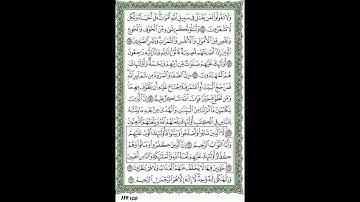 وَلَا تَقُولُوا۟ لِمَن يُقْتَلُ فِى سَبِيلِ ٱللَّهِ أَمْوَٰتٌۢ بَلْ أَحْيَآءٌ وَلَٰكِن
لَّا تَشْعُرُونَ ۝١٥٤ وَلَنَبْلُوَنَّكُم بِشَىْءٍ مِّنَ ٱلْخَوْفِ وَٱلْجُوعِ
وَنَقْصٍ مِّنَ ٱلْأَمْوَٰلِ وَٱلْأَنفُسِ وَٱلثَّمَرَٰتِ وَبَشِّرِ ٱلصَّٰبِرِينَ ۝١٥٥
ٱلَّذِينَ إِذَآ أَصَٰبَتْهُم مُّصِيبَةٌ قَالُوٓا۟ إِنَّا لِلَّهِ وَإِنَّآ إِلَيْهِ رَٰجِعُونَ ۝١٥٦
أُو۟لَٰٓئِكَ عَلَيْهِمْ صَلَوَٰتٌ مِّن رَّبِّهِمْ وَرَحْمَةٌ وَأُو۟لَٰٓئِكَ
هُمُ ٱلْمُهْتَدُونَ ۝١٥٧ إِنَّ ٱلصَّفَا وَٱلْمَرْوَةَ مِن شَعَآئِرِ ٱللَّهِ
فَمَنْ حَجَّ ٱلْبَيْتَ أَوِ ٱعْتَمَرَ فَلَا جُنَاحَ عَلَيْهِ أَن يَطَّوَّفَ بِهِمَا
وَمَن تَطَوَّعَ خَيْرًا فَإِنَّ ٱللَّهَ شَاكِرٌ عَلِيمٌ ۝١٥٨ إِنَّ ٱلَّذِينَ
يَكْتُمُونَ مَآ أَنزَلْنَا مِنَ ٱلْبَيِّنَٰتِ وَٱلْهُدَىٰ مِنۢ بَعْدِ مَا بَيَّنَّٰهُ
لِلنَّاسِ فِى ٱلْكِتَٰبِ أُو۟لَٰٓئِكَ يَلْعَنُهُمُ ٱللَّهُ وَيَلْعَنُهُمُ ٱللَّٰعِنُونَ ۝١٥٩
إِلَّا ٱلَّذِينَ تَابُوا۟ وَأَصْلَحُوا۟ وَبَيَّنُوا۟ فَأُو۟لَٰٓئِكَ أَتُوبُ عَلَيْهِمْ
وَأَنَا ٱلتَّوَّابُ ٱلرَّحِيمُ ۝١٦٠ إِنَّ ٱلَّذِينَ كَفَرُوا۟ وَمَاتُوا۟ وَهُمْ
كُفَّارٌ أُو۟لَٰٓئِكَ عَلَيْهِمْ لَعْنَةُ ٱللَّهِ وَٱلْمَلَٰٓئِكَةِ وَٱلنَّاسِ أَجْمَعِينَ ۝١٦١
خَٰلِدِينَ فِيهَا لَا يُخَفَّفُ عَنْهُمُ ٱلْعَذَابُ وَلَا هُمْ يُنظَرُونَ ۝١٦٢
وَإِلَٰهُكُمْ إِلَٰهٌ وَٰحِدٌ لَّآ إِلَٰهَ إِلَّا هُوَ ٱلرَّحْمَٰنُ ٱلرَّحِيمُ ۝١٦٣